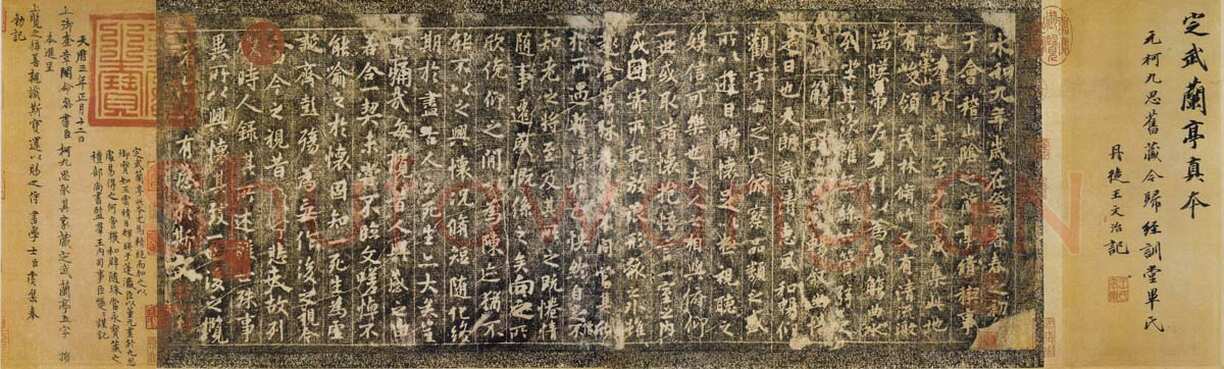 定武蘭亭真本
元柯九思舊藏今歸經訓堂畢氏
丹徒王文治記
永和九年歲在癸丑暮春之初
于會稽山陰之蘭亭脩稧事
也羣賢畢至少長咸集此地
有峻領茂林脩竹又有清流激
湍暎帶左右引以為流觴曲水
列坐其次雖無絲竹管弦之
盛一觴一詠亦足以暢敘幽情
是日也天朗氣清惠風和暢仰
觀宇宙之大俯察品類之盛
所以遊目騁懷足以極視聽之
娛信可樂也夫人之相與俯仰
一世或取諸懷抱悟言一室之內
或因寄所託放浪形骸之外雖
趣舍萬殊靜躁不同當其欣
於所遇暫得於己快然自足不
知老之將至及其所之既惓情
隨事遷感慨係之矣向之所
欣俛仰之間以為陳迹猶不
能不以之興懷況脩短隨化終
期於盡古人云死生亦大矣豈
不痛哉每攬昔人興感之由
若合一契未嘗不臨文嗟悼不
能喻之於懷固知一死生為虛
誕齊彭殤為妄作後之視今
亦由今之視昔悲夫故列
敘時人錄其所述雖世殊事
異所以興懷其致一也後之攬
者亦將有感於斯文
定武蘭亭此本尤為精絕而加之以
禮部尚書監羣玉內司事臣巎巎謹記
天曆三年正月十二日
上御奎章閣命參書臣柯九思取其家藏定武蘭亭五字損
本進呈
上覽之稱善親識斯寶還以賜之侍書學士臣虞集奉
勅記